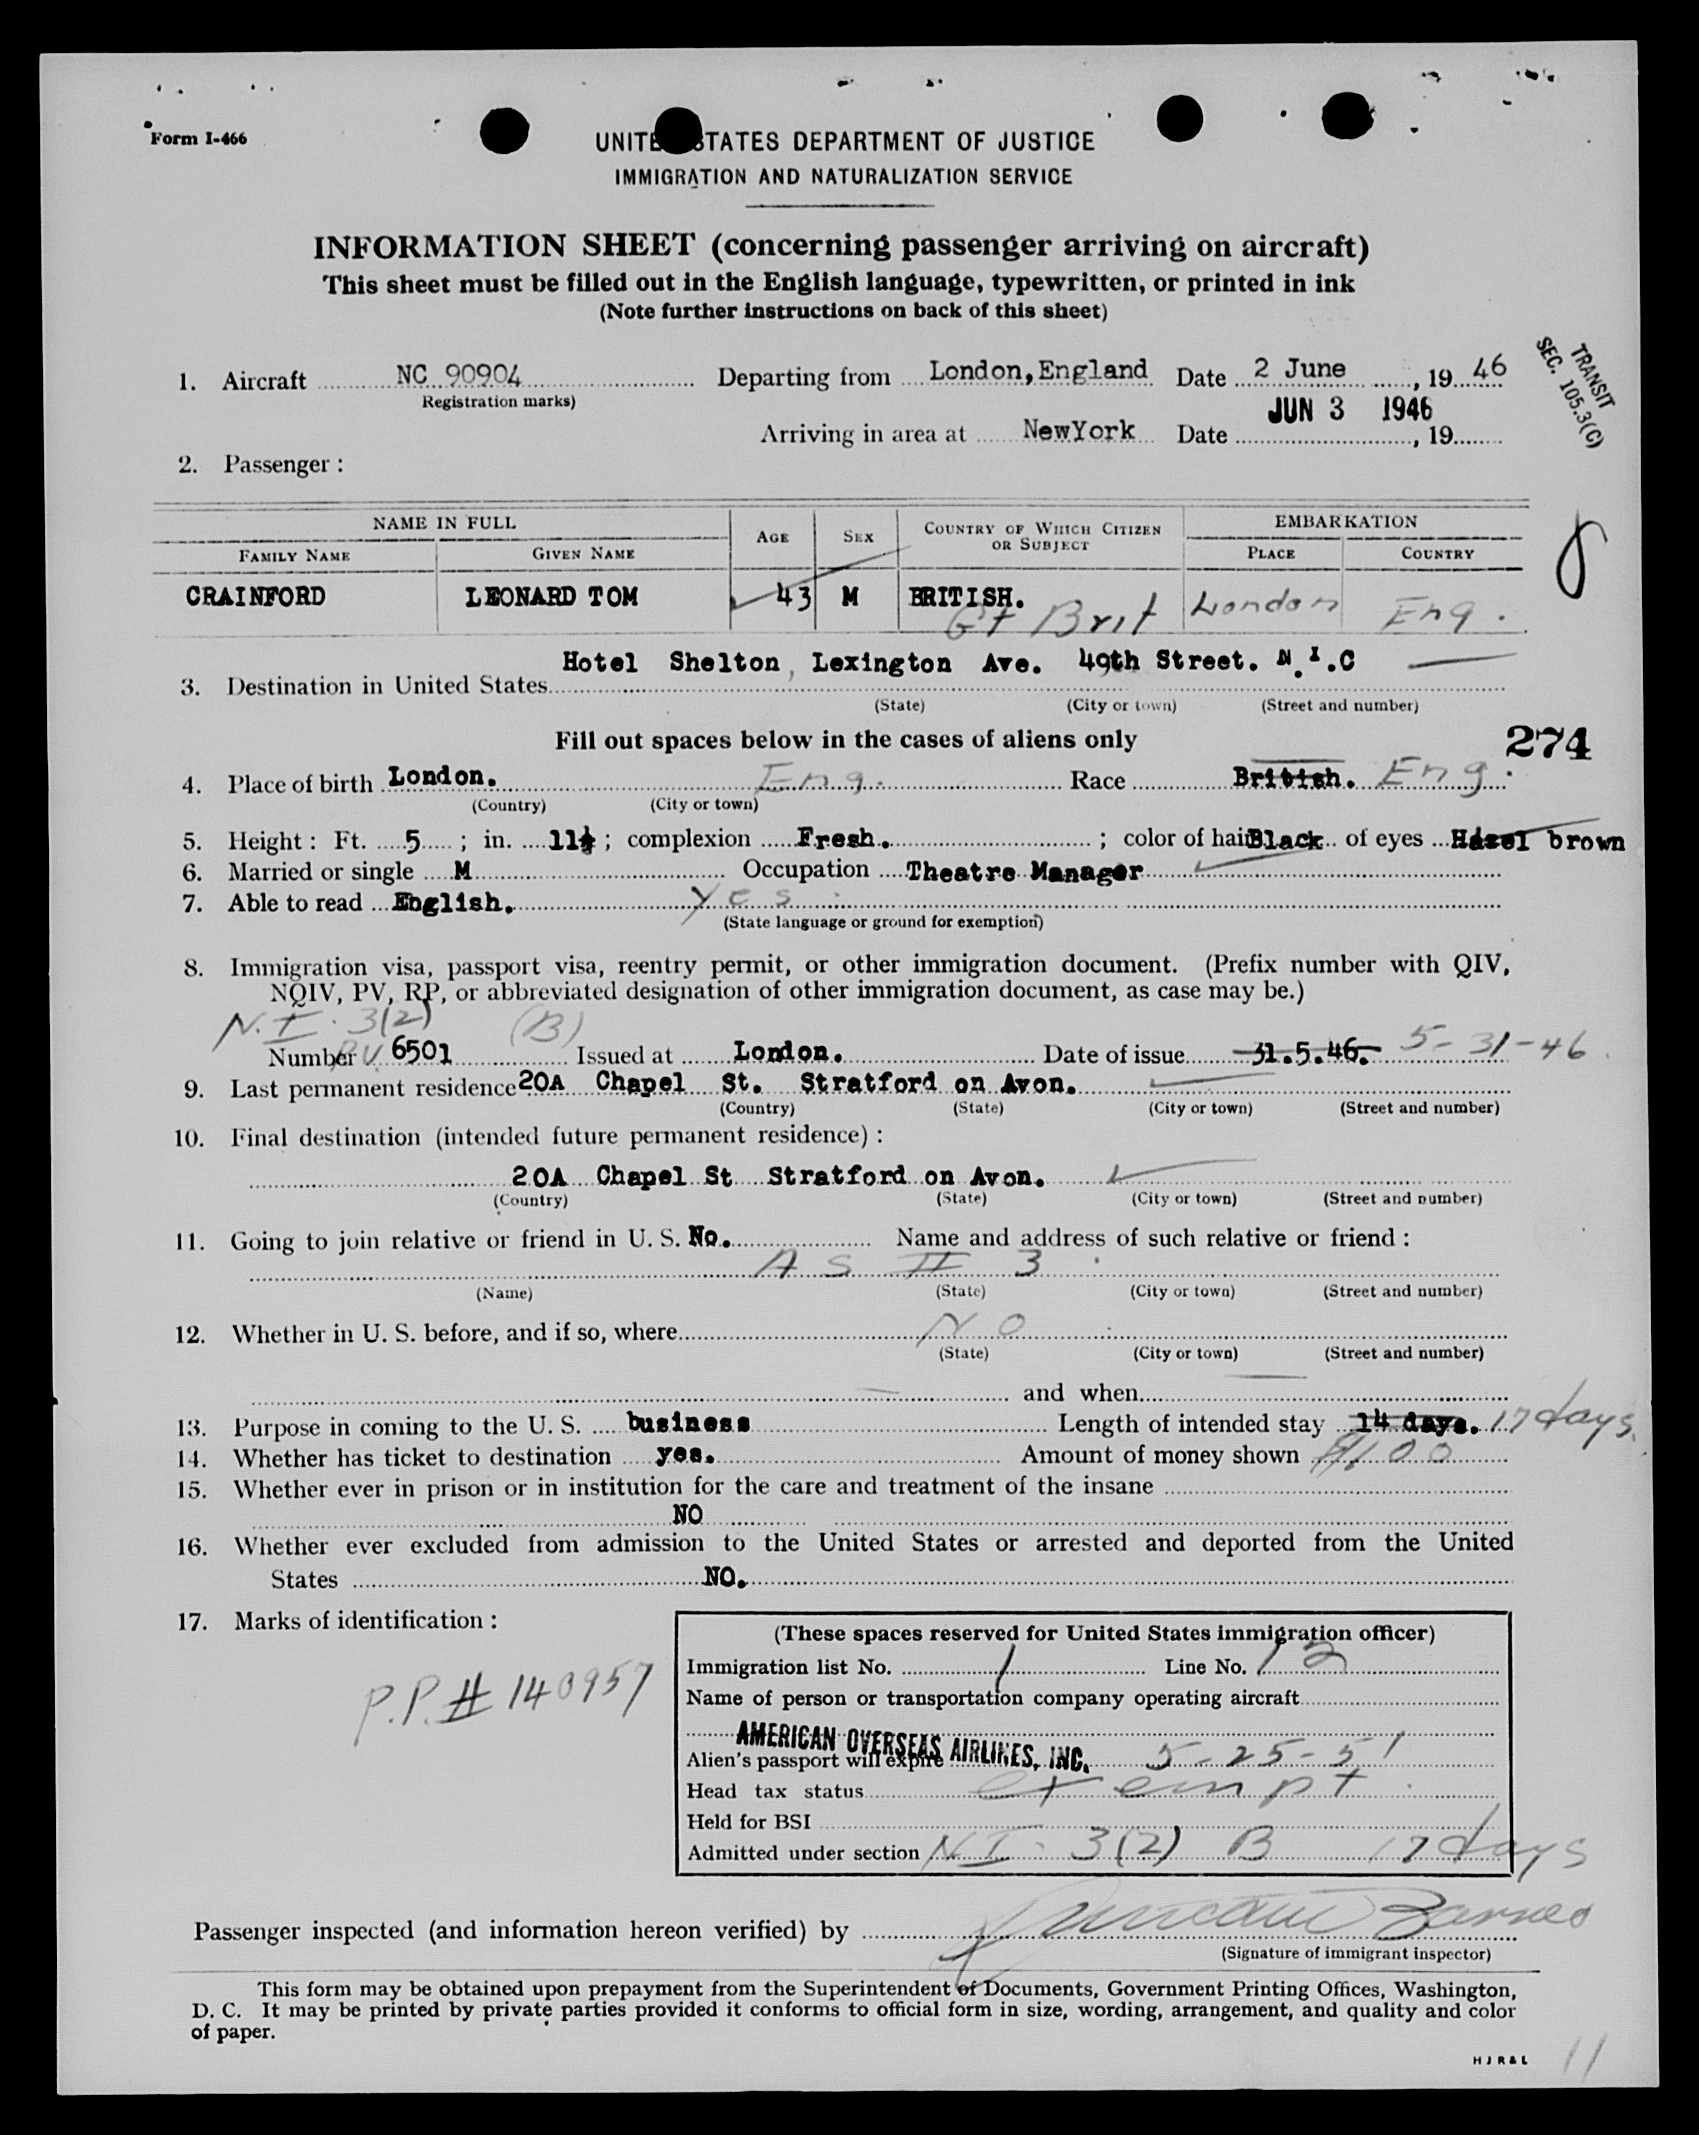 Form I-466
UNITED STATES DEPARTMENT OF JUSTICE
IMMIGRATION AND NATURALIZATION SERVICE
INFORMATION SHEET (concerning passenger arriving on aircraft)
This sheet must be filled out in the English language, typewritten, or printed in ink
(Note further instructions on back of this sheet)
TRANSIT
SEC. 105.3(C)
1. Aircraft NC 90904 Departing from London, England Date 2 June, 19 46
Registration marks)
JUN 3 1946
Arriving in area at NewYork Date , 19
2. Passenger :
NAME IN FULL AGE SEX COUNTRY OF WHICH CITIZEN OR SUBJECT EMBARKATION
FAMILY NAME GIVEN NAME PLACE COUNTRY
8
CRAINFORD LEONARD TOM 43 M BRITISH. London Eng.
Gt Brit
Hotel Shelton, Lexington Ave. 49th Street. N.Y.C
3. Destination in United States
(State) (City or town) (Street and number)
Fill out spaces below in the cases of aliens only
274
4. Place of birth London. Eng. Race British. Eng.
(Country) (City or town)
5. Height : Ft. 5 ; in. 11½ ; complexion Fresh. ; color of hair Black of eyes Hazel brown
6. Married or single M Occupation Theatre Manager
7. Able to read English. Yes
(State language or ground for exemption)
8. Immigration visa, passport visa, reentry permit, or other immigration document. (Prefix number with QIV,
NQIV, PV, RP, or abbreviated designation of other immigration document, as case may be.)
N.I. 3(2) (B)
Number 6501 Issued at London. Date of issue 31.5.46. 5-31-46
9. Last permanent residence 20A Chapel St. Stratford on Avon.
(Country) (State) (City or town) (Street and number)
10. Final destination (intended future permanent residence) :
20A Chapel St Stratford on Avon.
(Country) (State) (City or town) (Street and number)
11. Going to join relative or friend in U. S. No. Name and address of such relative or friend :
A S II 3
(Name) (State) (City or town) (Street and number)
12. Whether in U. S. before, and if so, where NO
(State) (City or town) (Street and number)
and when
13. Purpose in coming to the U. S. business Length of intended stay 14 days. 17 days.
14. Whether has ticket to destination yes. Amount of money shown
15. Whether ever in prison or in institution for the care and treatment of the insane
NO
16. Whether ever excluded from admission to the United States or arrested and deported from the United
States NO.
17. Marks of identification :
P.P. # 140957
(These spaces reserved for United States immigration officer)
Immigration list No. 1 Line No. 12
Name of person or transportation company operating aircraft
AMERICAN OVERSEAS AIRLINES, INC.
Alien's passport will expire 5-25-51
Head tax status exempt
Held for BSI
Admitted under section N.I. 3(2) B 17 days
Passenger inspected (and information hereon verified) by Barnes
(Signature of immigrant inspector)
This form may be obtained upon prepayment from the Superintendent of Documents, Government Printing Offices, Washington,
D. C. It may be printed by private parties provided it conforms to official form in size, wording, arrangement, and quality and color
of paper.
H J R & L
11